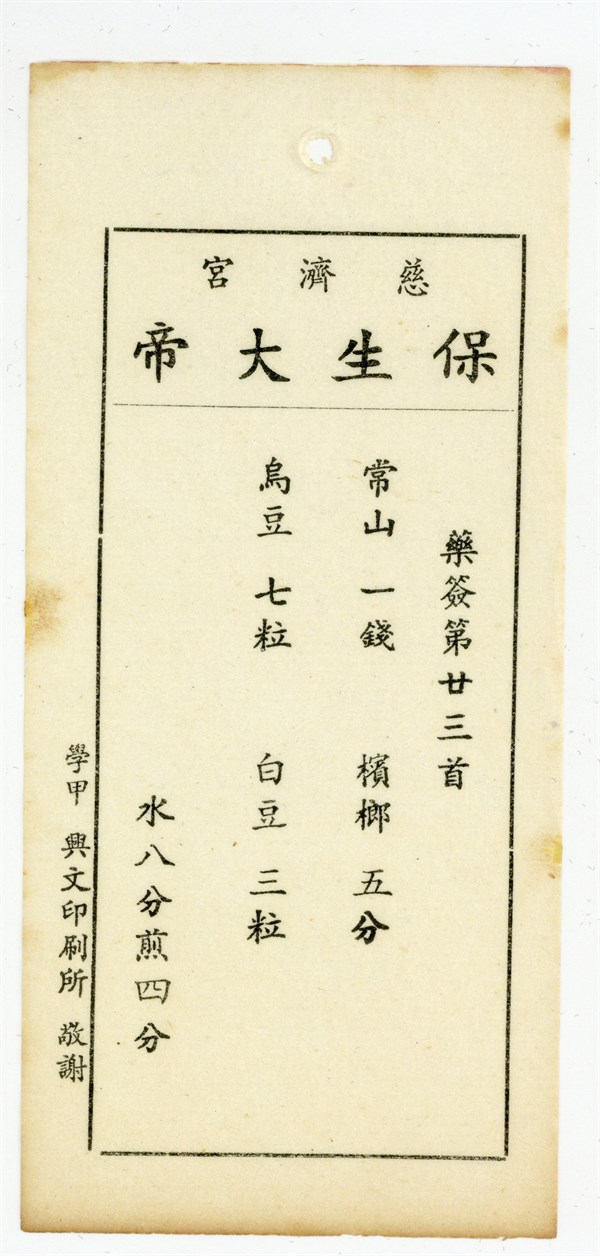 慈濟宮
保生大帝
藥簽第廿三首
常山 一錢 檳榔 五分
烏豆 七粒 白豆 三粒
水八分煎四分
學甲 興文印刷所 敬謝